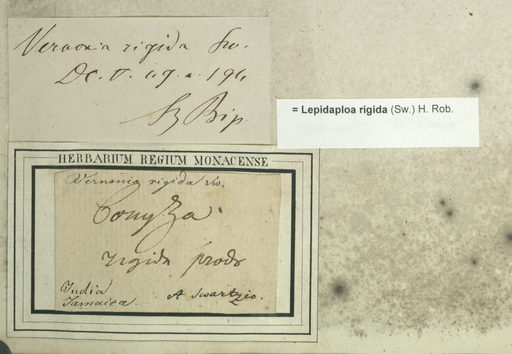 Vernonia rigida Sw.
DC. V. 49. n. 194
Sz Bip
= Lepidaploa rigida (Sw.) H. Rob.
HERBARIUM REGIUM MONACENSE
Vernonia rigida Sw.
Conyza
rigida prodr
India
Jamaica. A Swartzio.